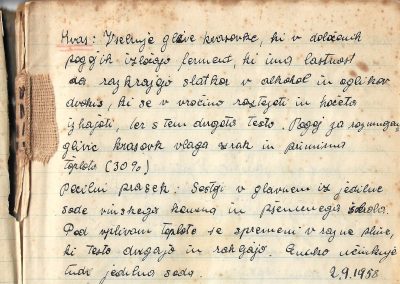 Kvas: Vsebuje glive kvasovke, ki v določenih
pogojih izločajo ferment, ki ima lastnost
da razkraja sladkor v alkohol in ogljikov
dvokis, ki se v vročino raztezati in hočeta
izhajati, ter s tem dvigata testo. Pogoj za
glivic kvasovk vlaga zrak in primerna
toplota (30%)
Pecilni prašek: Sestoji v glavnem iz jedilne
sode vinskega kamna in pšeničnega škroba.
Pod vplivom toplote se spremeni v razne pline,
ki testo dvigajo in rahljajo. Enako učinkuje
tudi jedilna soda. 2.9.1958